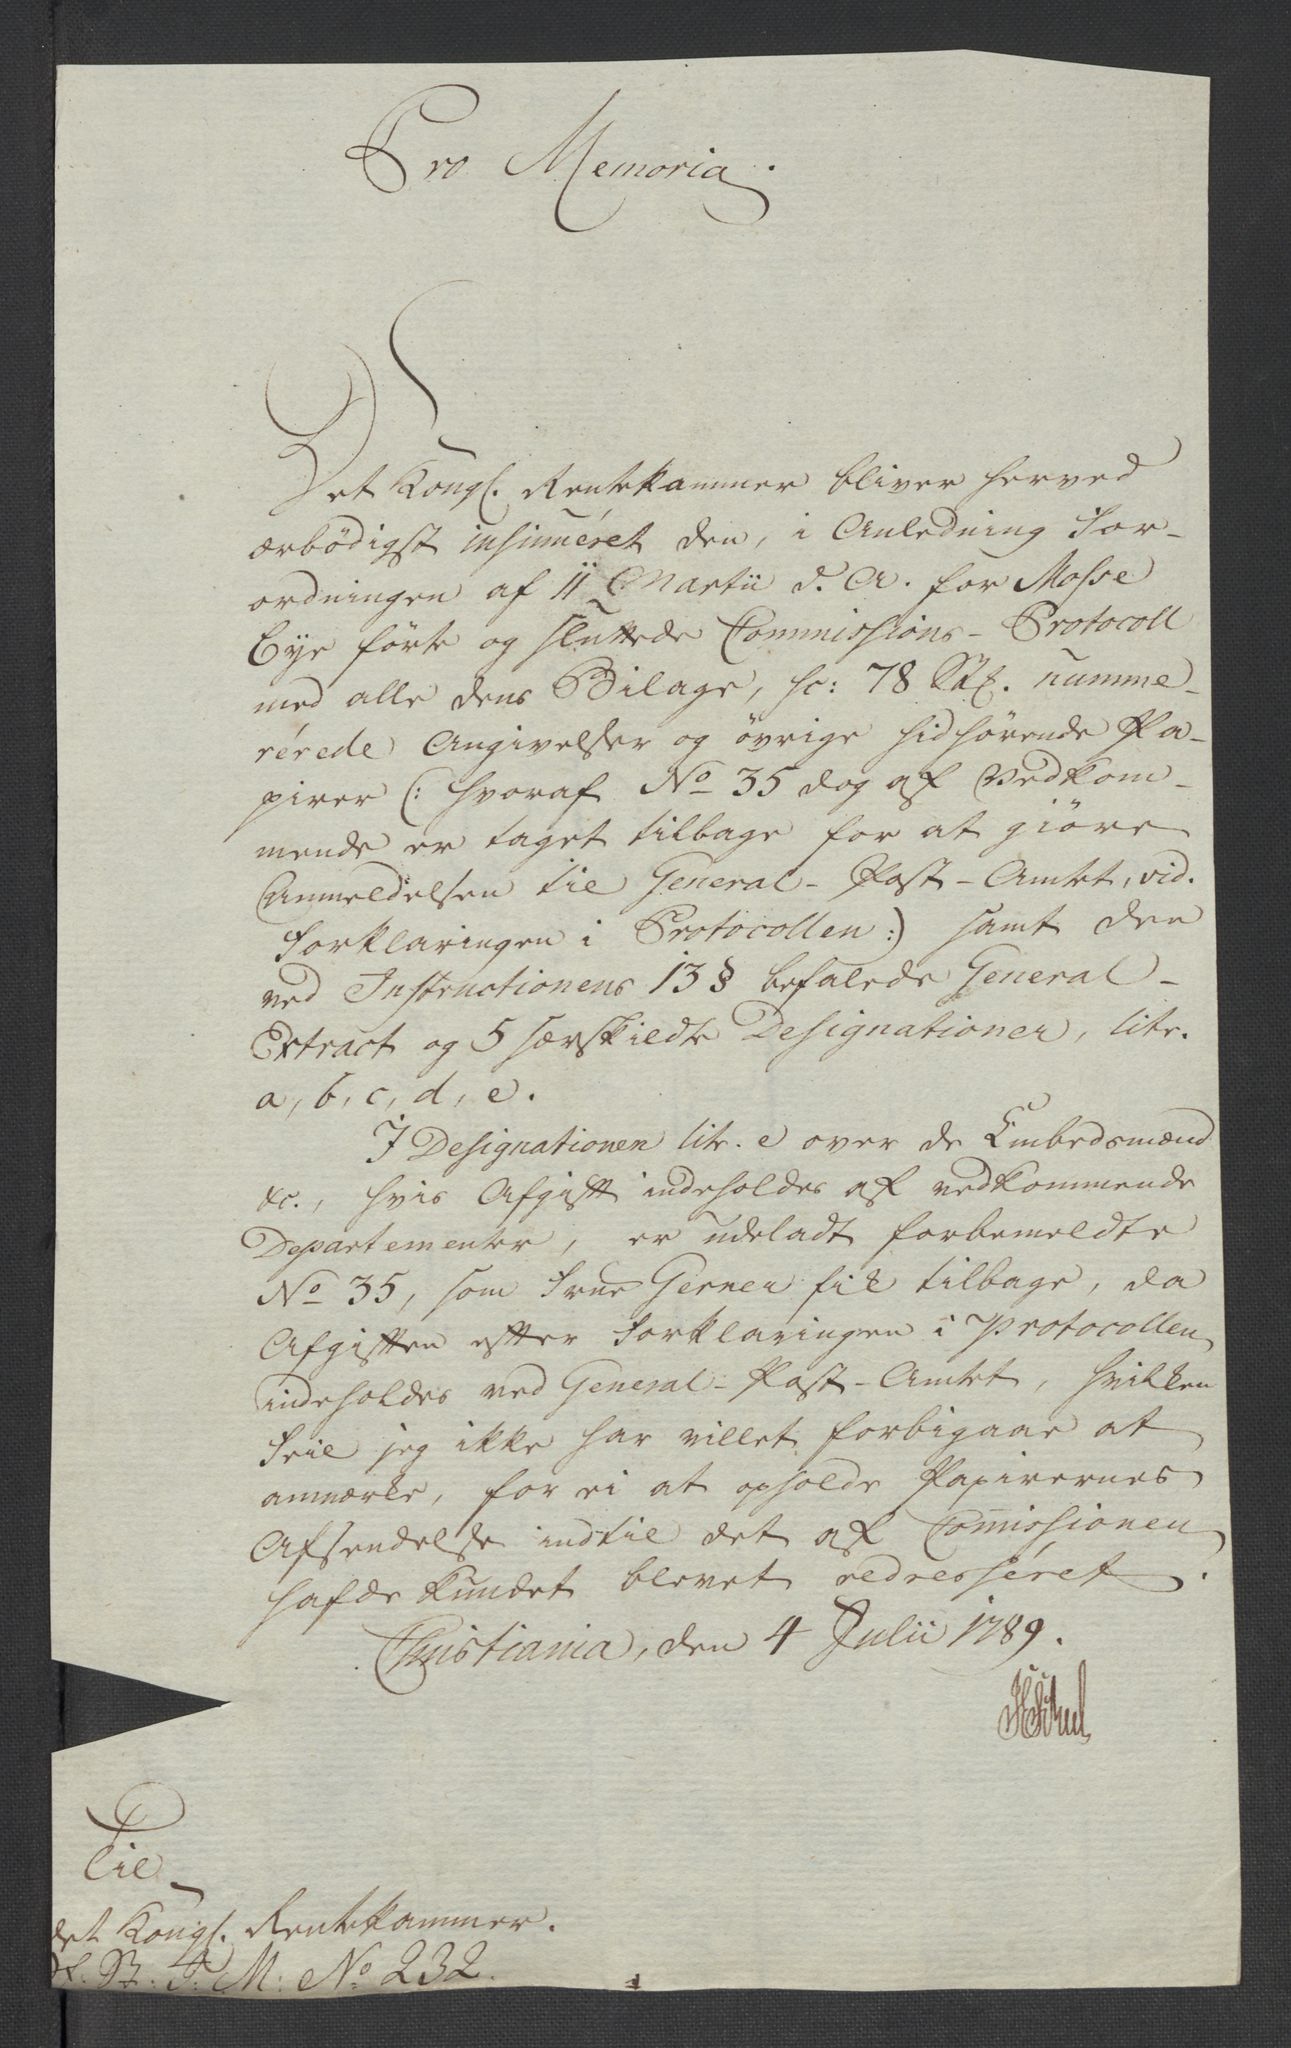 Pro Memoria.
Det Kongl. Rentekammer bliver herved
ærbödigst insinuéret den, i Anledning For-
ordningen af 11 Martii d. A. for Mosse
Bye förte og sluttede Commissions-Protocoll
med alle dens Bilage, sc: 78 Stk. numme-
rérede Angivelser og övrige hidhörende Pa-
pirer (: hvoraf No 35 dog af Vedkom-
mende er taget tilbage for at giöre
Anmeldelsen til General-Post-Amtet, vid.
Forklaringen i Protocollen :) samt den
ved Instructionens 13 § befalede General-
Extract og 5 særskildte Designationer, litr.
a, b, c, d, e.
I Designationen litr. e over de Embedsmænd
&c., hvis Afgift indeholdes af vedkommende
Departementer, er udeladt forbemeldte
No 35, som Frue Gerner fik tilbage, da
Afgiften efter Forklaringen i Protocollen
indeholdes ved General-Post-Amtet, hvilken
Feil jeg ikke har villet forbigaae at
anmærke, for ei at opholde Papirernes
Afsendelse indtil det af Comissionen
hafde kundet blevet redresséret.
Christiania, den 4 Julii 1789.
Til
det Kongl. Rentekammer.
St. J. M. No 232.